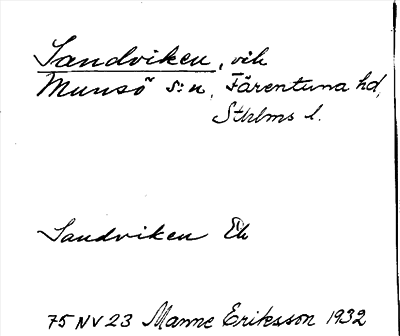 Sandviken, vik
Munsö s:n, Färentuna hd,
Sthlms l.
Sandviken Ek
75 NV 23 Manne Eriksson 1932